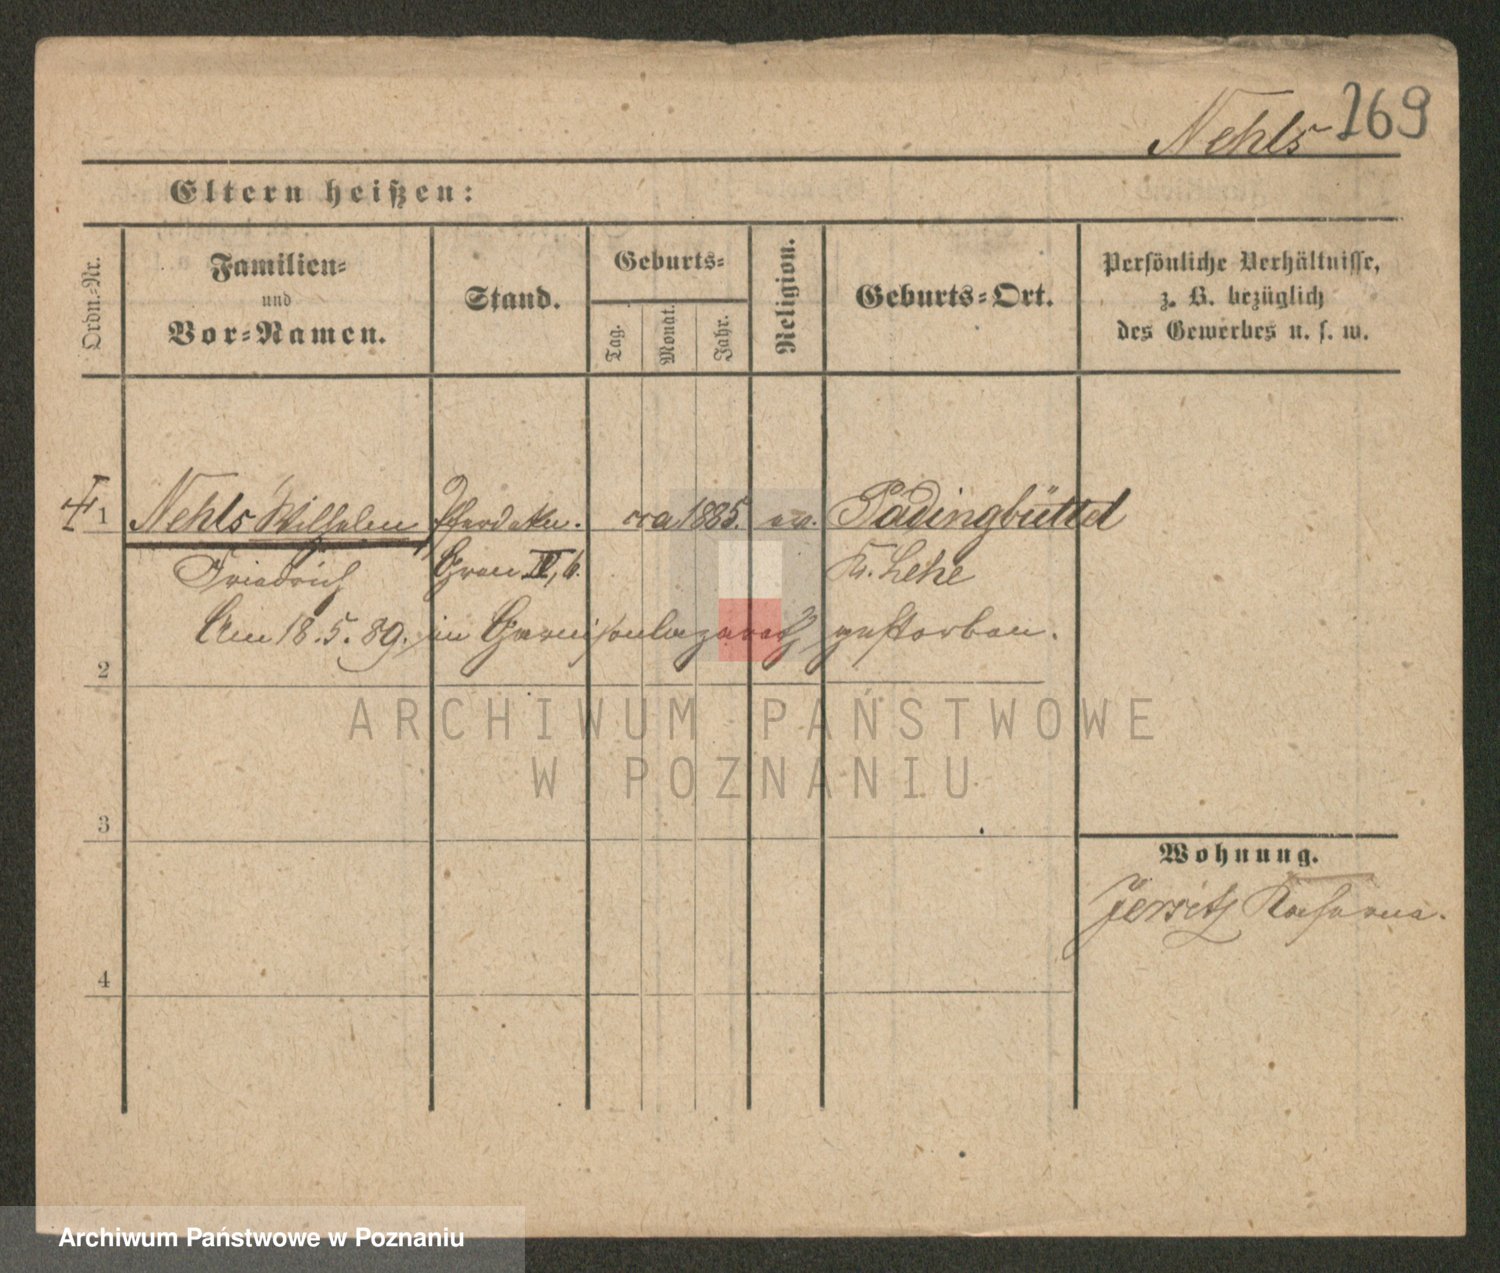 Nehls 269
Eltern heißen:
Ordn.-Nr.
Familien-
und
Vor-Namen.
Stand.
Geburts-
Tag.
Monat.
Jahr.
Religion.
Geburts-Ort.
Persönliche Verhältnisse,
z. B. bezüglich
des Gewerbes u. s. w.
1 Nehls Wilhelm 1885. ev. Padingbüttel
Friedrich Gren IV, 6. Kr. Lehe
Am 18.5.89. im Garnisonlazareth gestorben.
2
ARCHIWUM PAŃSTWOWE
W POZNANIU
3
Wohnung.
Jersitz Kaserne.
4
Archiwum Państwowe w Poznaniu